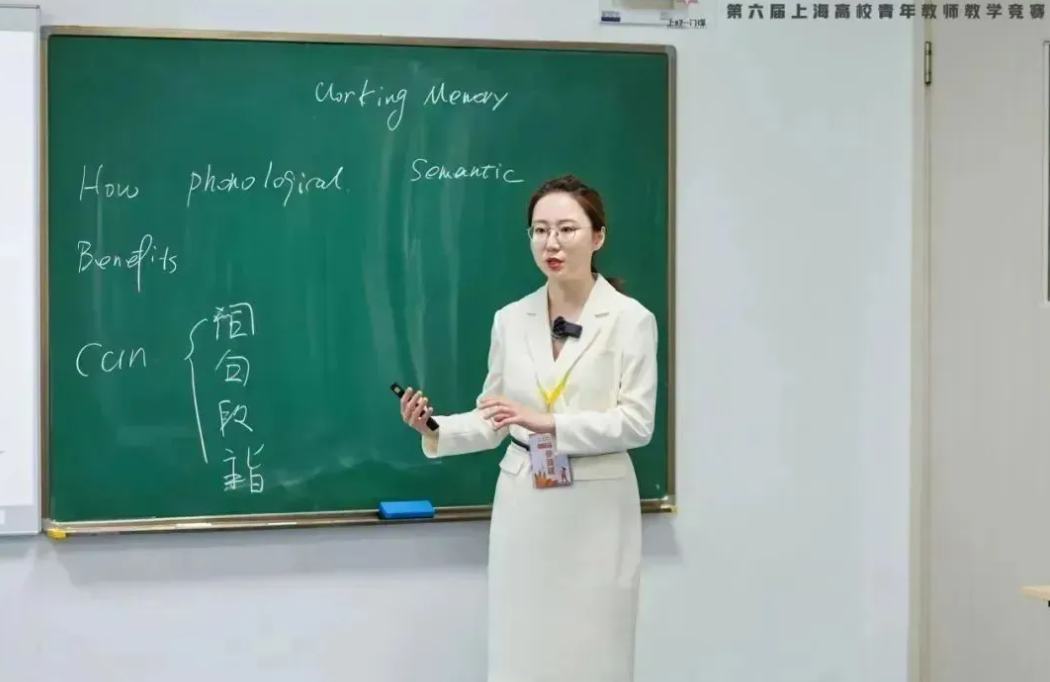 第六届上海高校青年教师教学竞赛
Working Memory
How phonological. Semantic
Benefits
Can
句
段